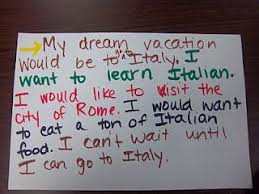 My dream vacation
would be to Italy. I
want to learn Italian.
I would like to visit the
city of Rome. I would want
to eat a ton of Italian
food. I can't wait until
I can go to Italy.